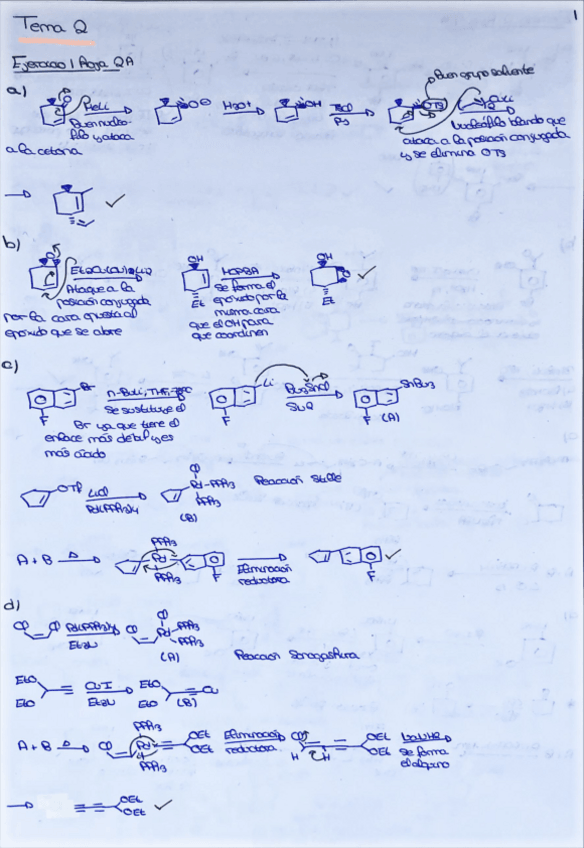 1
Tema 2
Ejercicio 1 Hoja 2A
a)
Buen grupo saliente
O
MeLi
O⊖
H3O+
OH
TsCl
Py
OTs
CuLi
Buen nucleófilo
y ataca
a la cetona
Nucleófilo blando que
ataca a la posición conjugada
y se elimina OTs
✓
b)
O
Et2Cu(CN)Li2
Ataque a la
posición conjugada
por la cara opuesta al
epóxido que se abre
OH
Et
MCPBA
Se forma el
epóxido por la
misma cara
que el OH para
que coordinen
OH
O
Et
✓
c)
Br
F
n-BuLi, THF, -78ºC
Se sustituye el
Br ya que tiene el
enlace más débil y es
más ácido
Li
F
Bu3SnCl
SN2
SnBu3
F
(A)
OTf
LiCl
Pd(PPh3)4
Cl
Pd-PPh3
PPh3
(B)
Reacción Stille
A + B
Δ
PPh3
Pd
PPh3
F
Eliminación
reductora
F
✓
d)
Cl
Cl
Pd(PPh3)4
Et3N
Cl
Cl
Pd-PPh3
PPh3
(A)
Reacción Sonogashira
EtO
EtO
CuI
Et3N
EtO
EtO
Cu
(B)
A + B
Δ
Cl
PPh3
Pd
PPh3
OEt
OEt
Eliminación
reductora
Cl
H
H
OEt
OEt
Se forma
el alquino
OEt
OEt
✓